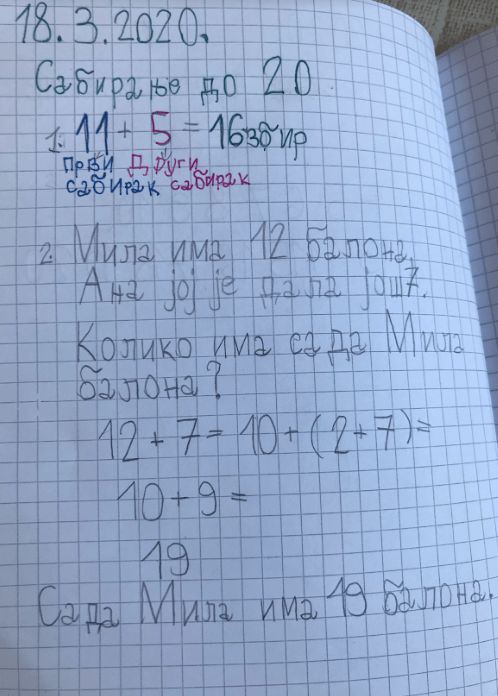 18.3.2020.
Сабирање до 20
1. 11 + 5 = 16 збир
први други
сабирак сабирак
2. Мила има 12 балона.
Ана јој је дала још 7.
Колико има сада Мила
балона?
12 + 7 = 10 + (2 + 7) =
10 + 9 =
19
Сада Мила има 19 балона.